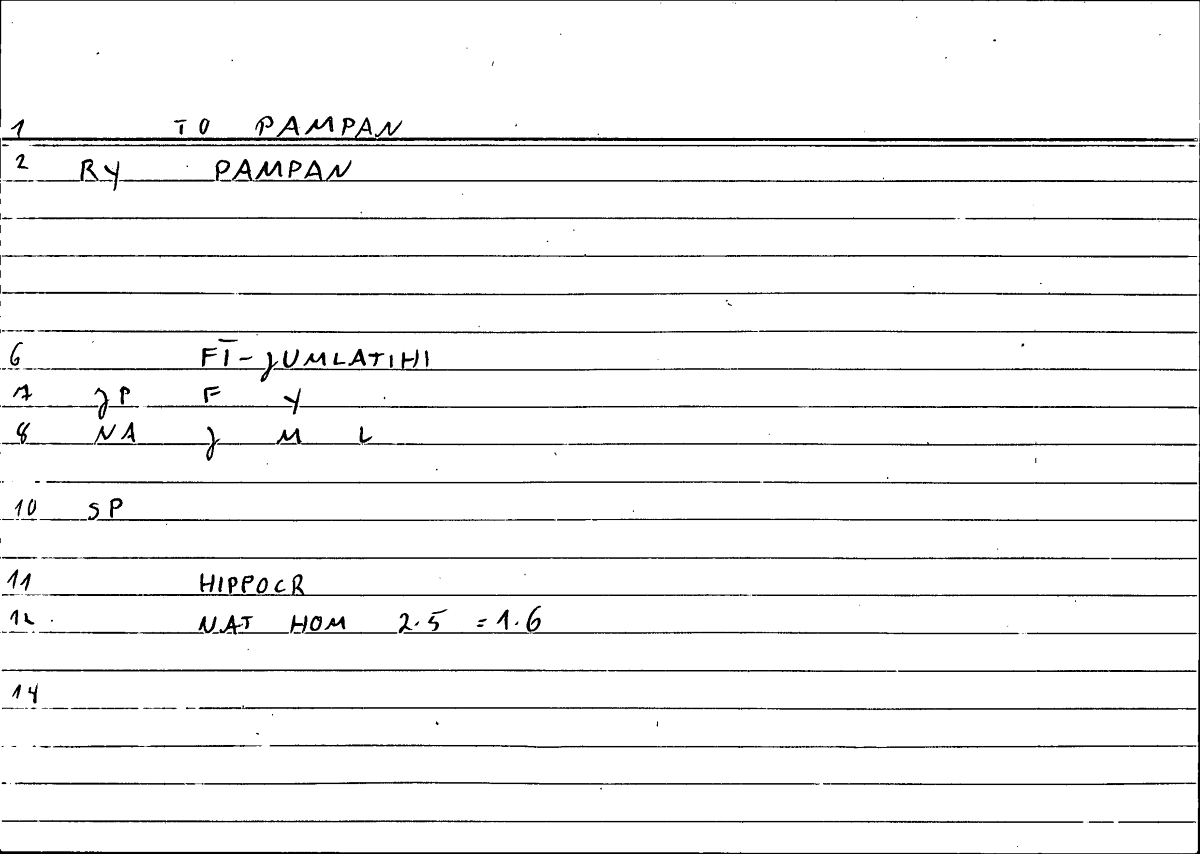 1 TO PAMPAN
2 RY PAMPAN
6 FĪ-JUMLATIHI
7 JP F Y
8 NA J M L
10 SP
11 HIPPOCR
12 NAT HOM 2.5 = 1.6
14